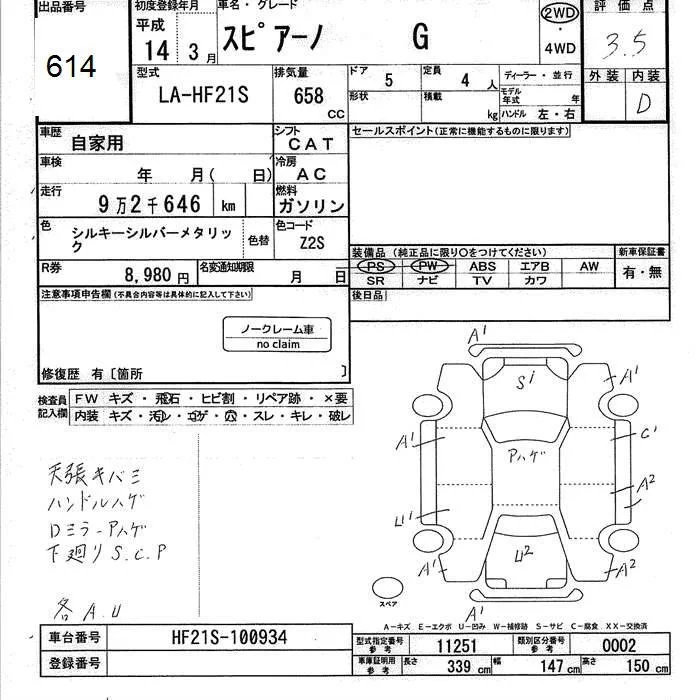 出品番号 初度登録年月 車名・グレード 評価点
614 平成 14 3月 スピアーノ G 2WD ・ 4WD 3.5
型式 排気量 ドア 5 定員 4人 ディーラー・並行 外装 内装
LA-HF21S 658 CC 形状 積載 kg モデル年式 年 ハンドル 左・右 D
車歴 自家用 シフト CAT セールスポイント(正常に機能するものに限ります)
車検 年 月( 日) 冷房 AC
走行 9万2千646 km 燃料 ガソリン
色 シルキーシルバーメタリック 色替 色コード Z2S
装備品(純正品に限り○をつけてください) 新車保証書
R券 8,980円 名変通知期限 月 日 PS PW ABS エアB AW 有・無
SR ナビ TV カワ
注意事項申告欄(不具合内容等は具体的に記入して下さい) 後日品
ノークレーム車
no claim
修復歴 有〔箇所 〕
検査員記入欄 FW キズ・飛石・ヒビ割・リペア跡・×要
内装 キズ・汚レ・コゲ・穴・スレ・キレ・破レ
A1
S1
A1
A1 Pハゲ C1
A2
U1
U2
A1 A2
A1
スペア
天張キバミ
ハンドルハゲ
Dミラ-Pハゲ
下廻りS.C.P
各A.U
A-キズ E-エクボ U-凹み W-補修跡 S-サビ C-腐食 XX-交換済
車台番号 HF21S-100934 型式指定番号 参考 11251 類別区分番号 参考 0002
登録番号 車庫証明用 参考 長さ 339cm 幅 147cm 高さ 150cm